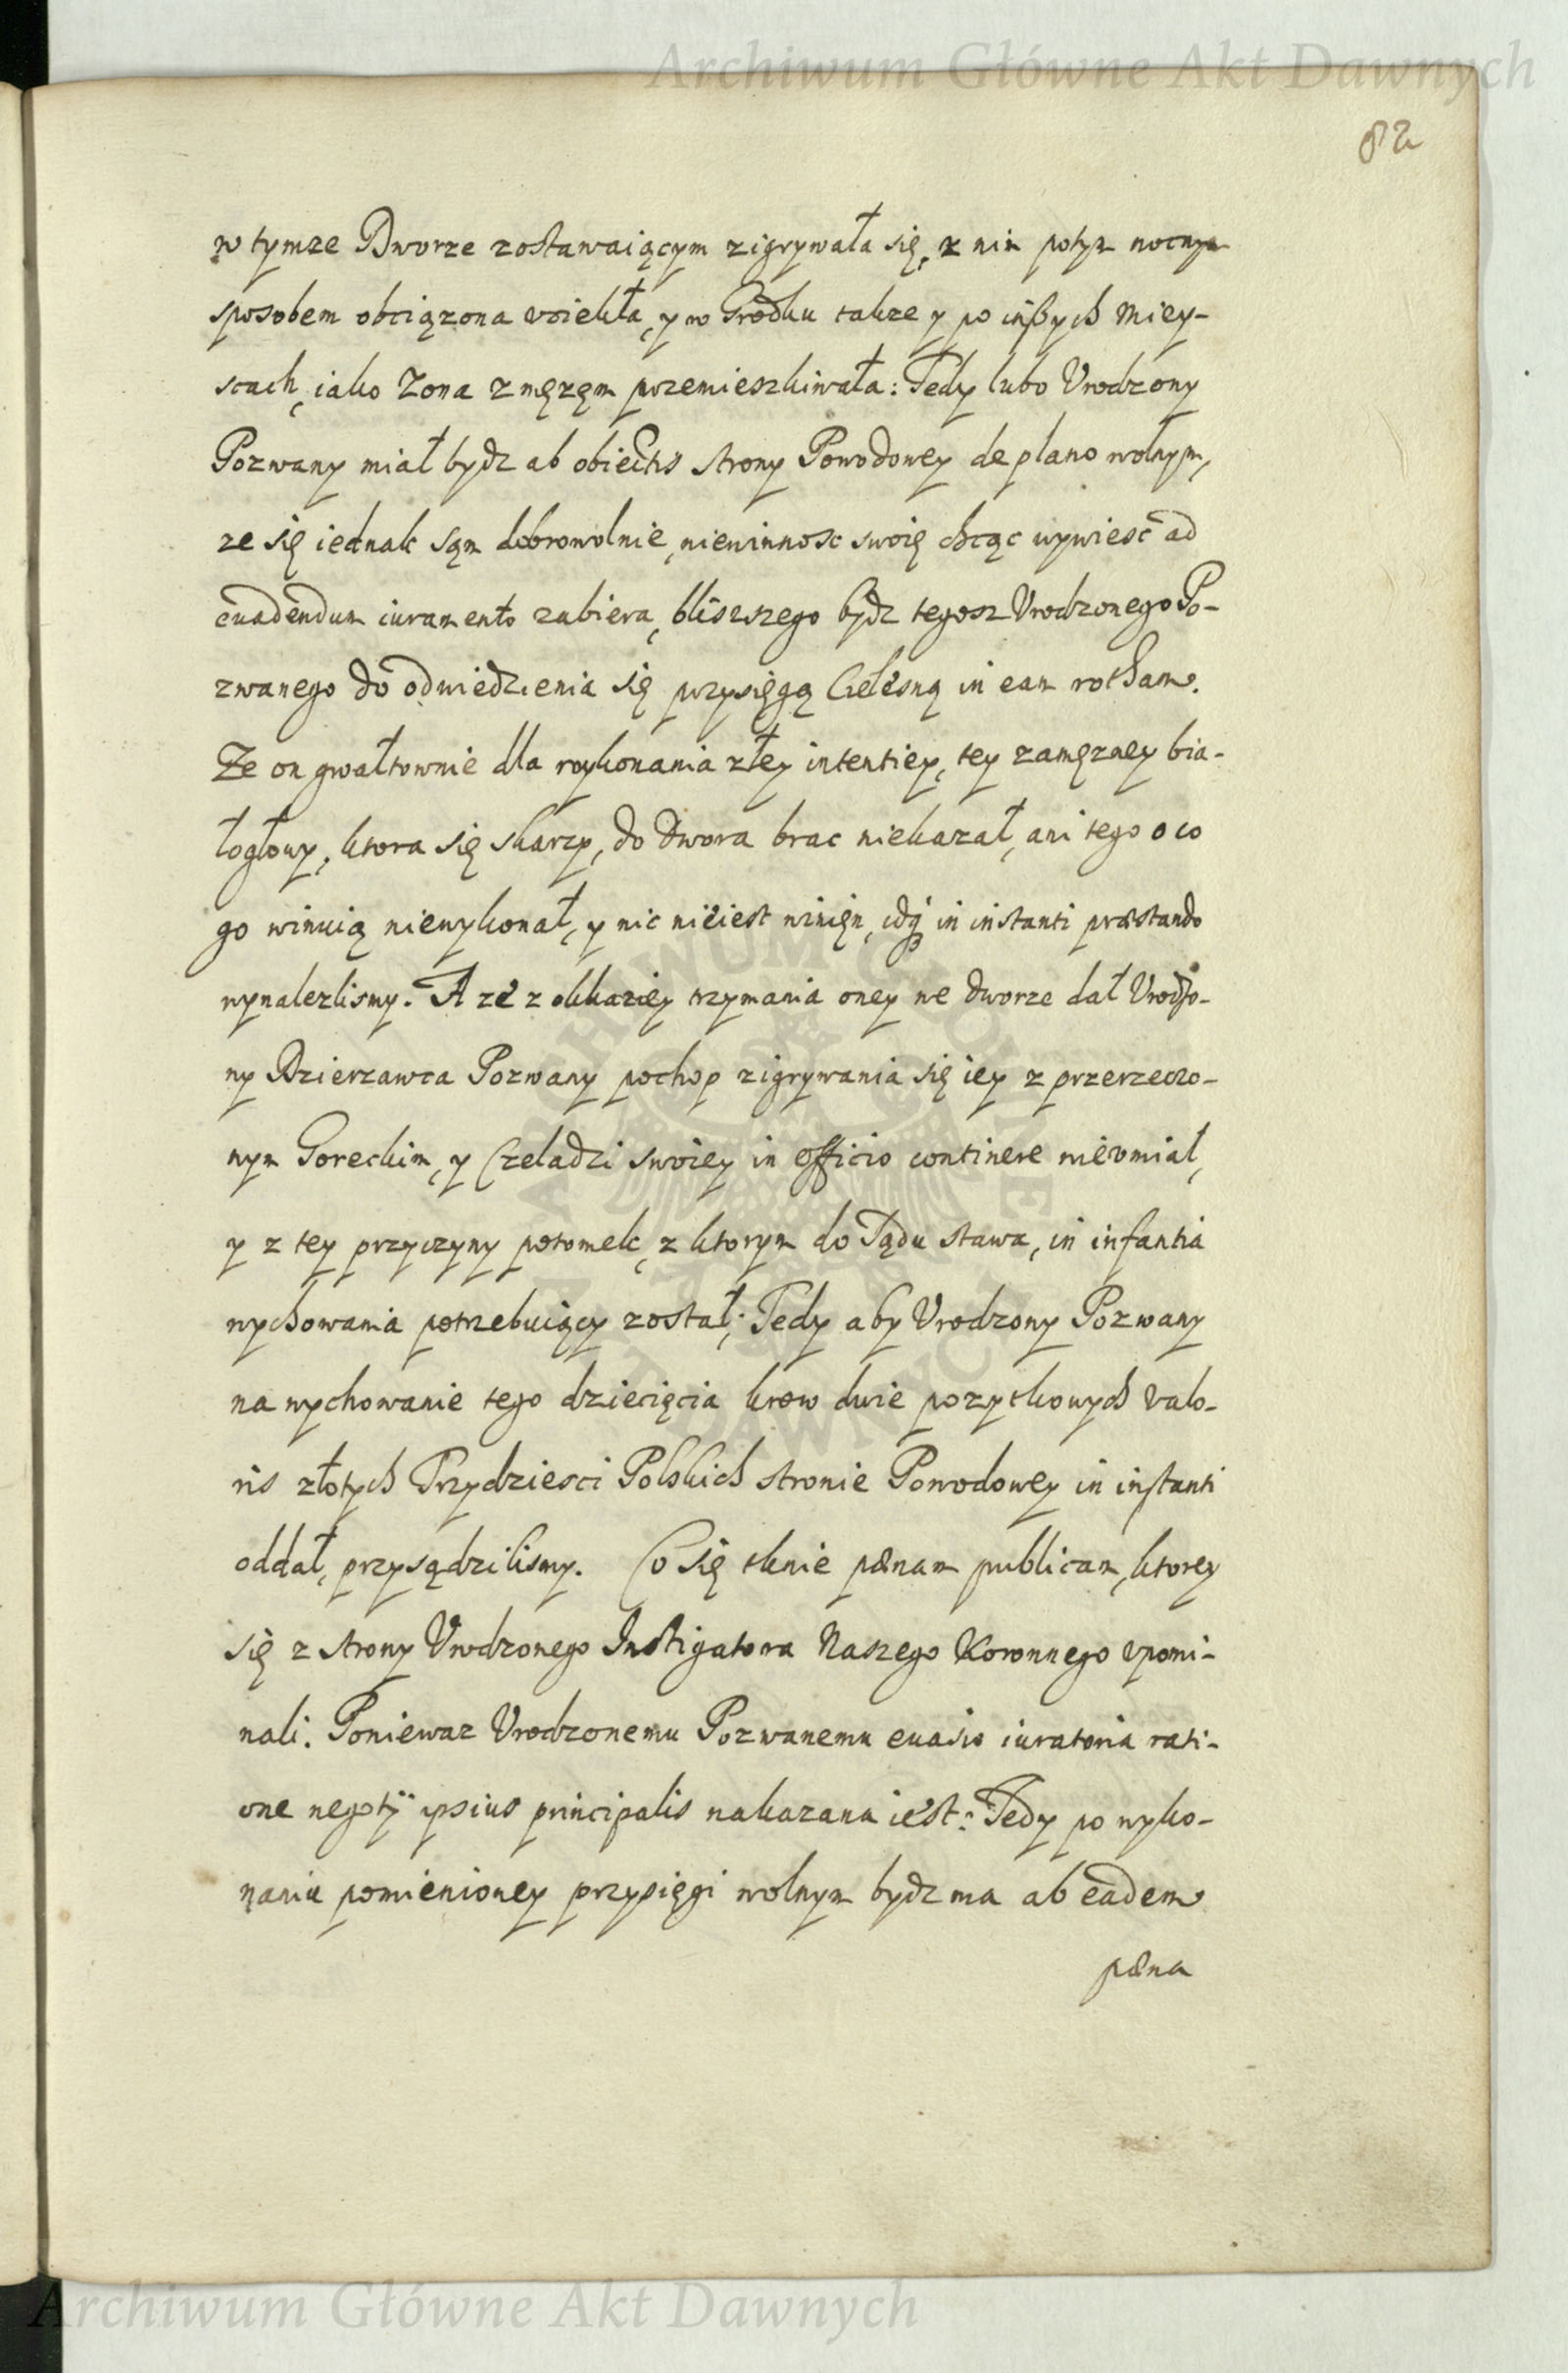 Archiwum Główne Akt Dawnych
82
w tymze Dworze zostawaiącym zigrywała się, z nim potym nocnym
sposobem obciązona vciekła, y w Grodku takze y po inszych Miey-
scach, iako Zona z męzęm przemieszkiwała: Tedy lubo Vrodzony
Pozwany miał bydz ab obiectis strony Powodowey de plano wolnym,
ze się iednak sąm dobrowolnie, niewinnosc swoię chcąc wywiesc ad
euadendum iuramento zabiera, bliszszego bydz tegosz Vrodzonego Po-
zwanego do odwiedzienia się przysięgą Cielesną in eam rotham.
Ze on gwałtownie dla wykonania złey intentiey, tey zamęzney bia-
łogłowy, ktora się skarzy, do dwora brac niekazał, ani tego o co
go winuią niewykonał, y nic nieiest winięn, idq in instanti præstando
wynalezlismy. A ze z okkaziey trzymania oney we dworze dał Vrodzo-
ny Dzierzawca Pozwany pochop zigrywania się iey z przerzeczo-
nym Goreckim, y Czeladzi swoiey in officio continere nievmiał,
y z tey przyczyny potomek, z ktorym do Sądu stawa, in infantia
wychowania potrzebuiący został; Tedy aby Vrodzony Pozwany
na wychowanie tego dziecięcia krow dwie pozytkowych valo-
ris złotych Trzydziesci Polskich stronie Powodowey in instanti
oddał, przysądzilismy. Co się tknie pænam publicam, ktorey
się z strony Vrodzonego Instigatora Naszego Koronnego vpomi-
nali. Poniewaz Vrodzonemu Pozwanemu euasio iuratoria rati-
one negotÿ ipsius principalis nakazana iest: Tedy po wyko-
naniu pomienioney przysięgi wolnym bydz ma ab eadem
pæna
Archiwum Główne Akt Dawnych